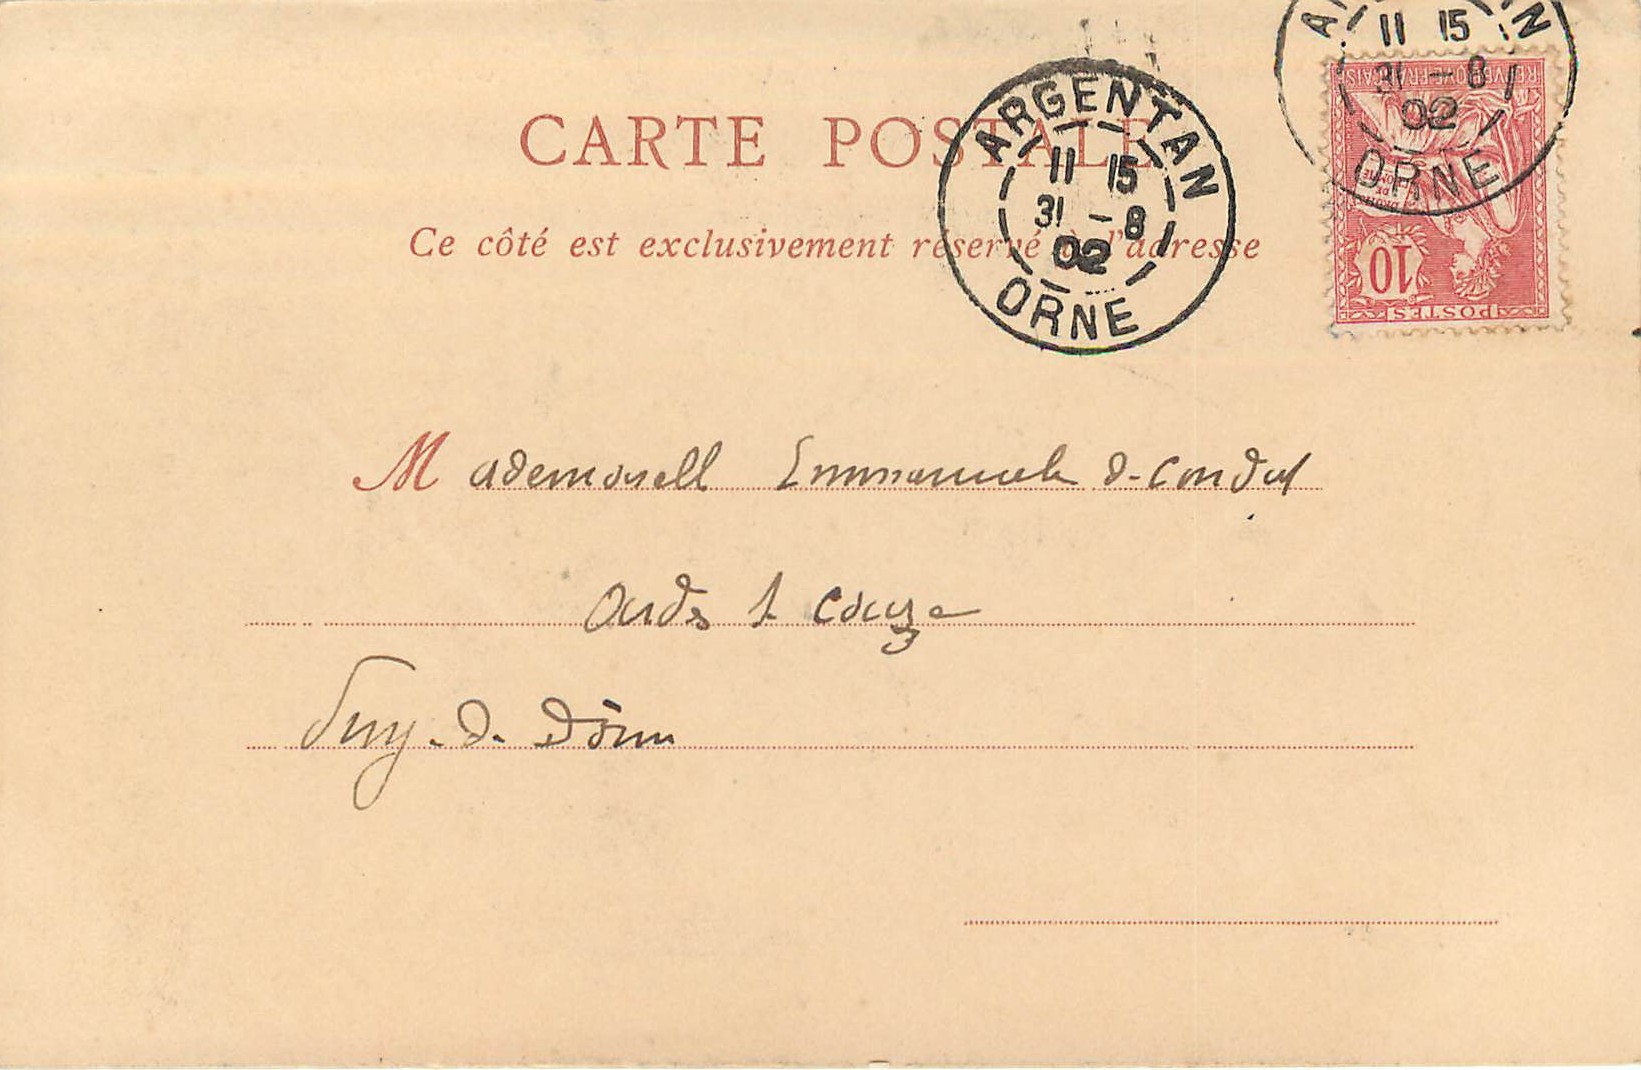 CARTE POSTALE
Ce côté est exclusivement réservé à l'adresse
ARGENTAN
11 15
31 - 8
02
ORNE
11 15
31 - 8
02
ORNE
REPUBLIQUE FRANÇAISE
10
POSTES
Mademoisell Emmanuele de
Couze
Puy-de-Dôme